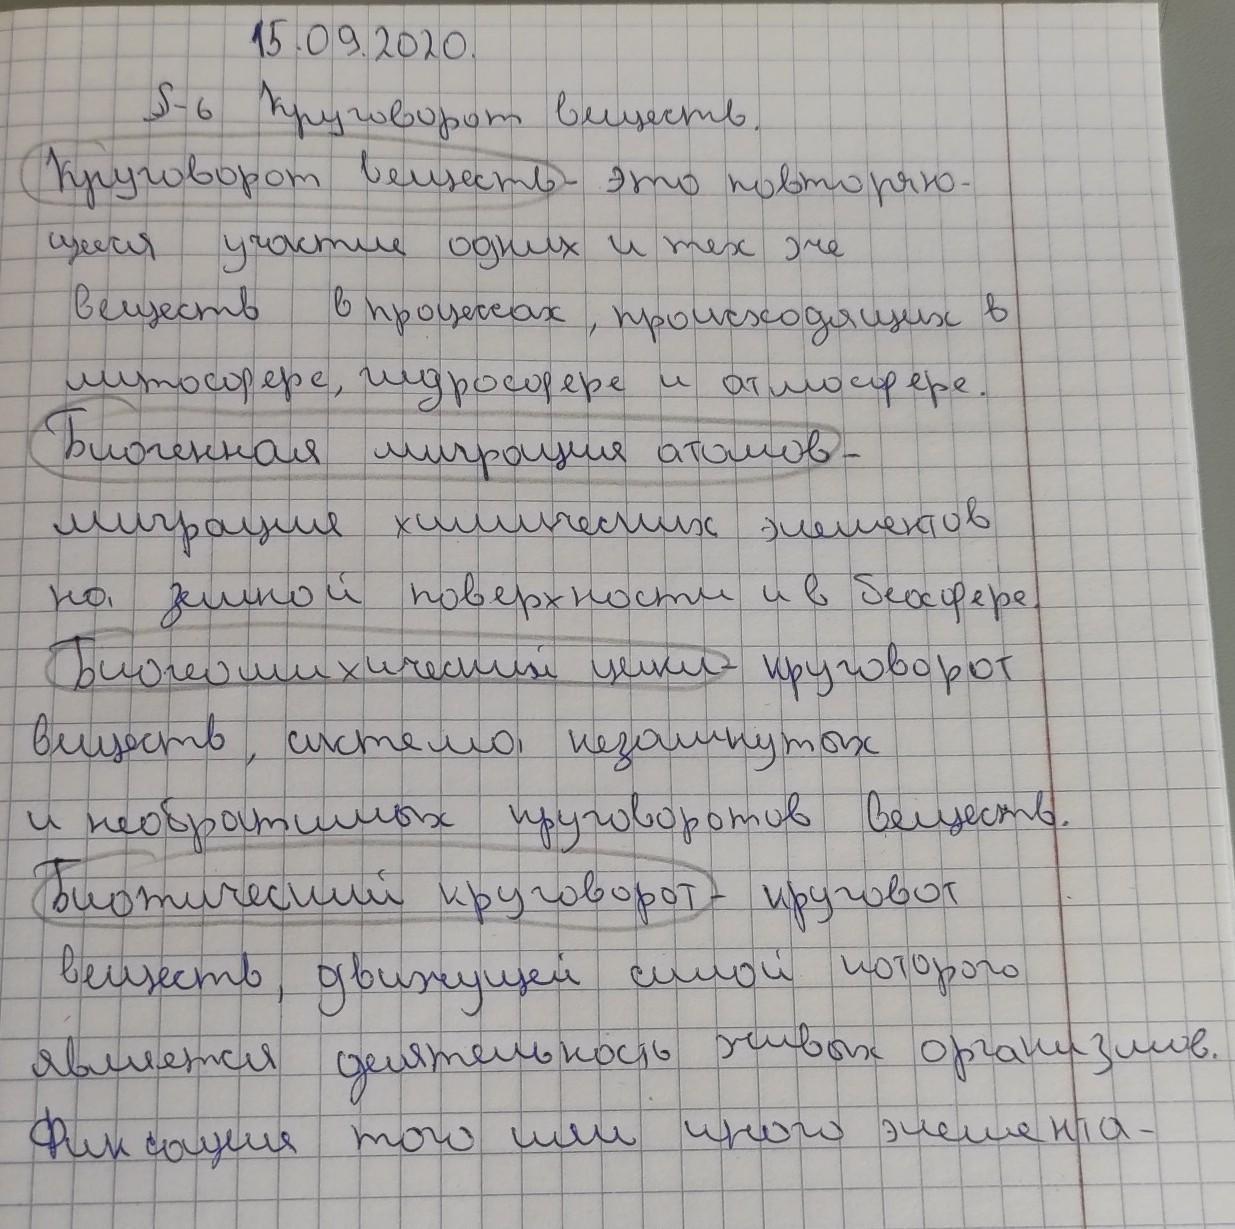 15.09.2020.
§-6 Круговорот веществ.
Круговорот веществ - это повторяю-
щееся участие одних и тех же
веществ в процессах, происходящих в
литосфере, гидросфере и атмосфере.
Биогенная миграция атомов -
миграция химических элементов
на земной поверхности и в биосфере.
Биогеохимический цикл - круговорот
веществ, система незамкнутых
и необратимых круговоротов веществ.
Биотический круговорот - круговот
веществ, движущей силой которого
является деятельность живых организмов.
Фиксация того или иного элемента -